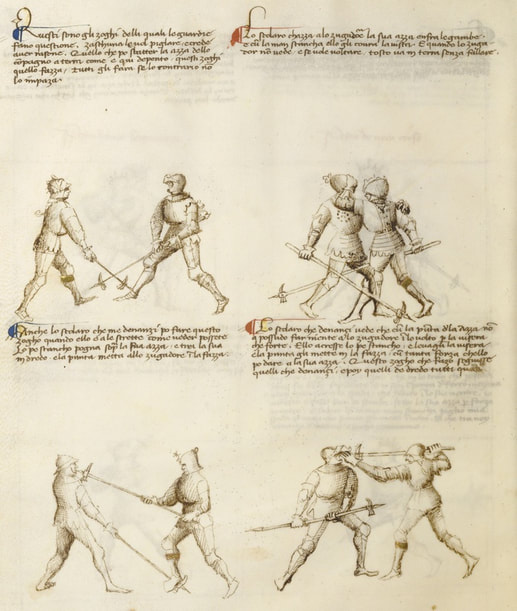 Questi sono gli zoghi delli quali le guardie
fano questione. zaschuna le vol pigliare e crede
aver rasone. Quello che po sbatter la azza dello
compagno a terra come e qui depento. questi zoghi
quello fazza. Tuti gli fara se lo contrario no
lo impaza.
Lo scolaro chazza a lo zugador la sua azza enfra le gambe.
E cu la man stancha allo gli coura la visera. E quando lo zuga
dor no vede. e se vole voltare. tosto va in terra senza fallare.
Anche lo scolaro che me denanzi po fare questo
zogho quando ello e a le strette como veder possete
Lo pe stancho pogna sopra la sua azza. e trei la sua
in dredo e la punta metta allo zugadore in la fazza.
Lo scolaro che denanci vede che cum la punta dla azza no
a possudo far niente a lo zugadore i lo volto p la visera
che forte. Ello acresse lo pe stancho. e levagli la visera.
e la punta gli mette in la fazza. cum tanta forza chello
po dare a la sua azza. Questo zogho che fazo seguisse
quelli che denanci. e poy quelli de dredo tutti quanti